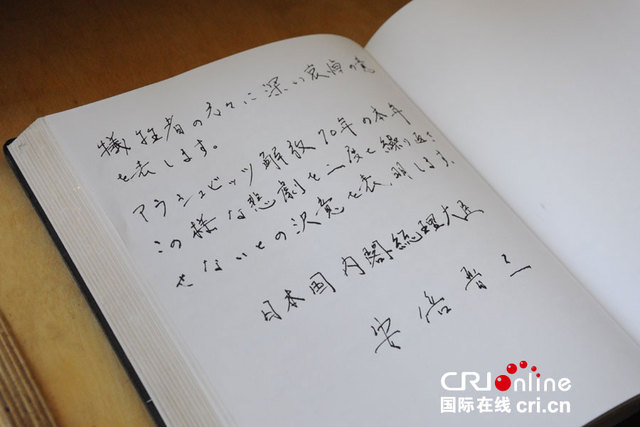 犠牲者の方々に深い哀悼の意
を表します。
アウシュビッツ解放70年の本年
この様な悲劇を二度と繰り返さ
せないとの決意を表明します。
日本国内閣総理大臣
安倍晋三
CRI online
国际在线 cri.cn